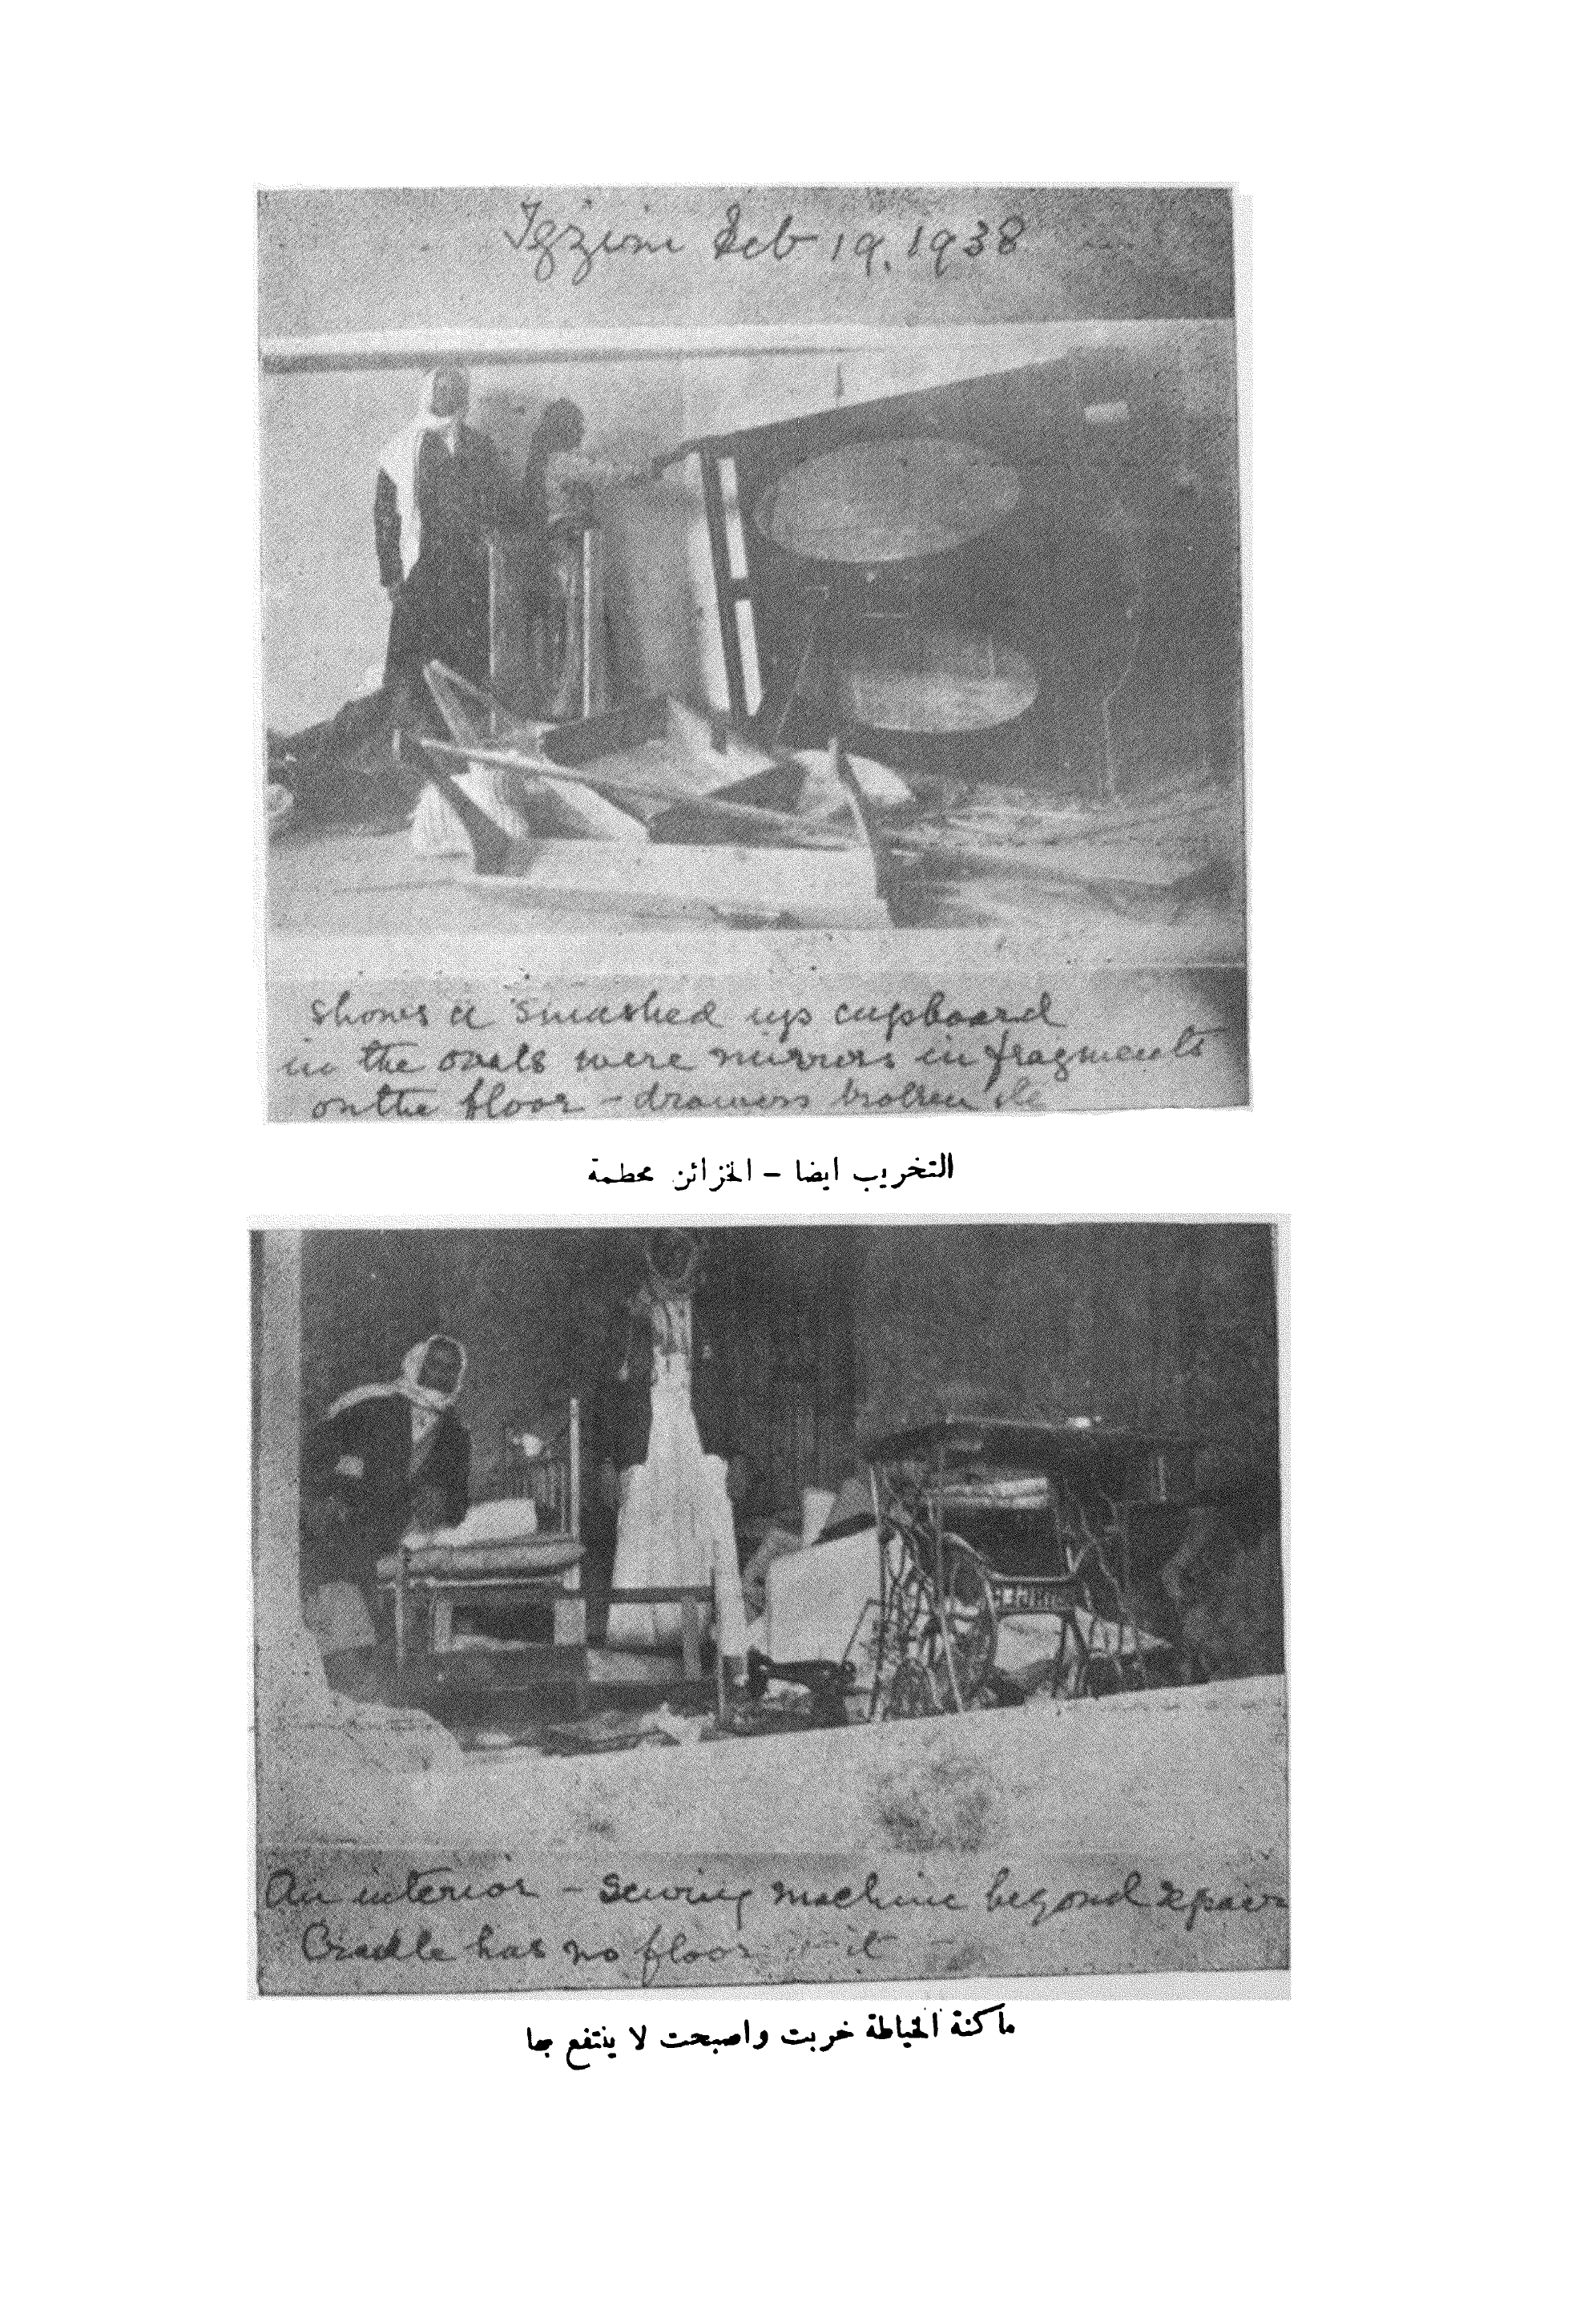 Igzim Feb 19, 1938
shows a smashed up cupboard
in the ovals were mirrors in fragments
on the floor – drawers broken etc
التخريب ايضا – الخزائن محطمة
An interior – sewing machine beyond repair
Cradle has no floor it
ماكنة الخياطة خربت واصبحت لا ينتفع بها